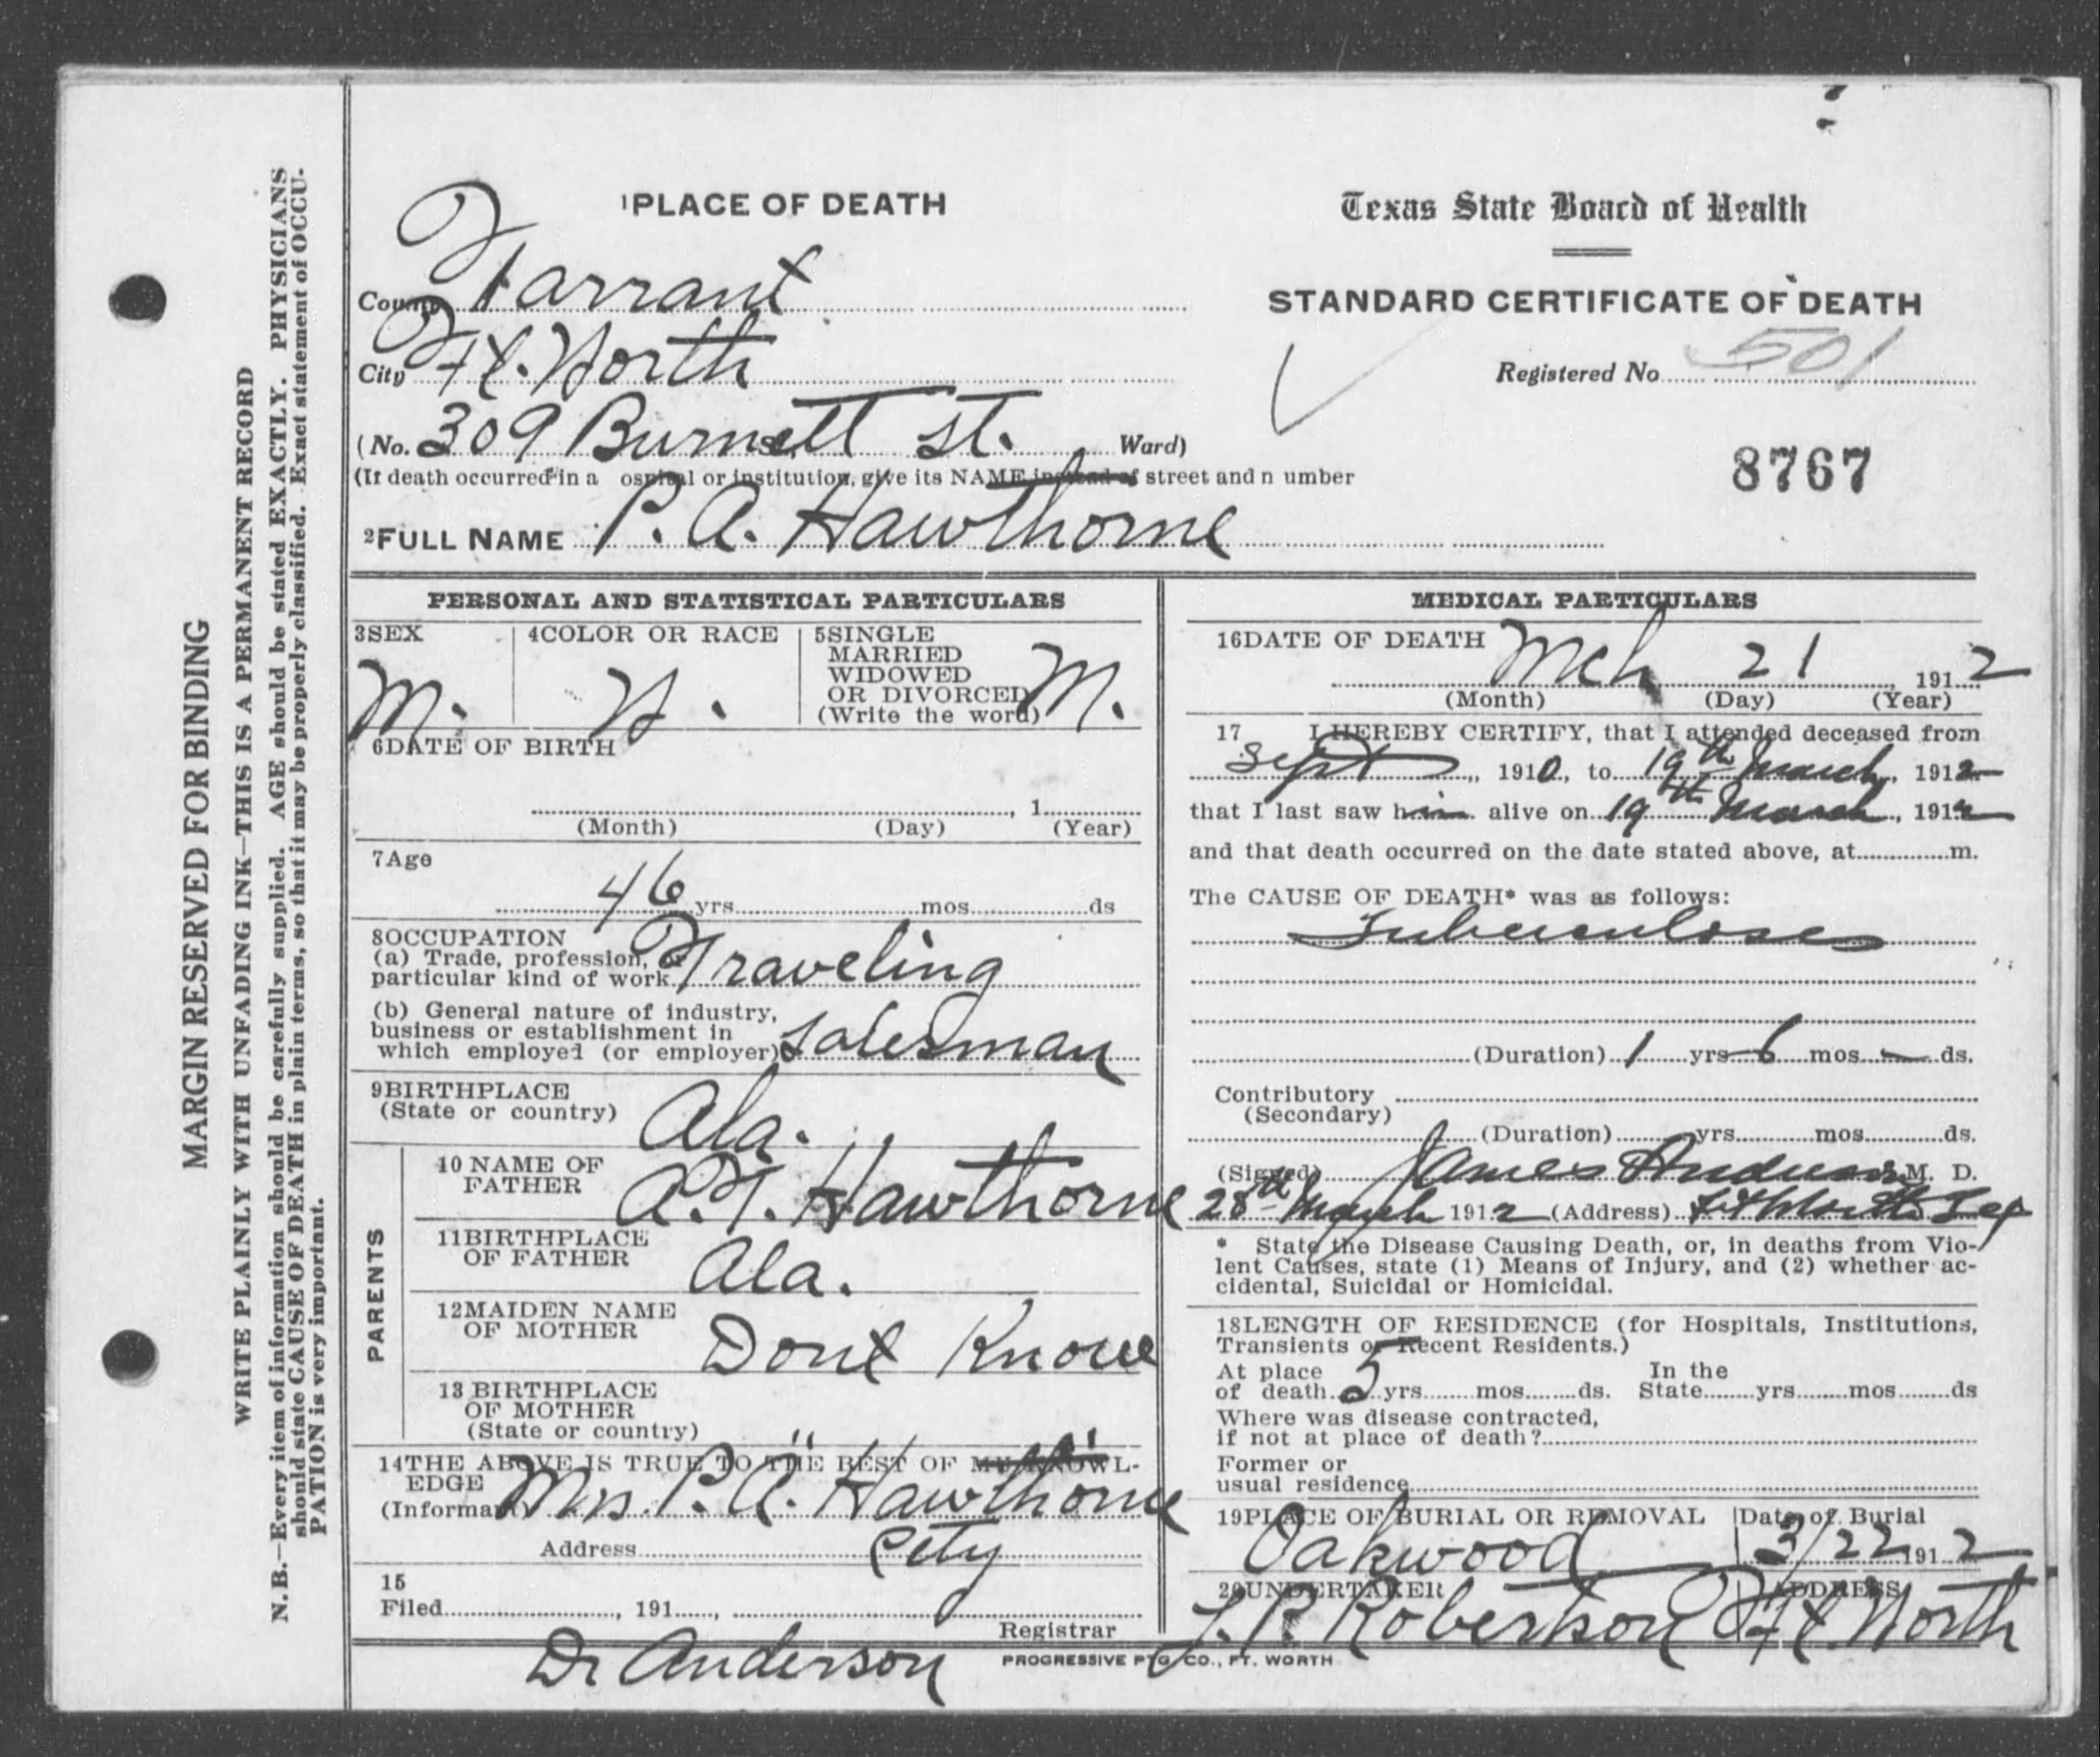 MARGIN RESERVED FOR BINDING
WRITE PLAINLY WITH UNFADING INK—THIS IS A PERMANENT RECORD
N. B.—Every item of information should be carefully supplied. AGE should be stated EXACTLY. PHYSICIANS
should state CAUSE OF DEATH in plain terms, so that it may be properly classified. Exact statement of OCCU-
PATION is very important.
1PLACE OF DEATH
County Tarrant
City Ft. Worth
(No. 309 Burnett St. Ward)
(If death occurred in a ospital or institution, give its NAME instead of street and n umber
2FULL NAME P. A. Hawthorne
Texas State Board of Health
STANDARD CERTIFICATE OF DEATH
Registered No. 501
8767
PERSONAL AND STATISTICAL PARTICULARS
3SEX M.
4COLOR OR RACE W.
5SINGLE
MARRIED
WIDOWED
OR DIVORCED
(Write the word) M.
6DATE OF BIRTH
, 1
(Month) (Day) (Year)
7Age
46 yrs. mos. ds
8OCCUPATION
(a) Trade, profession, or
particular kind of work Traveling
(b) General nature of industry,
business or establishment in
which employed (or employer) Salesman
9BIRTHPLACE
(State or country) Ala.
PARENTS
10 NAME OF
FATHER A. T. Hawthorne
11BIRTHPLACE
OF FATHER Ala.
12MAIDEN NAME
OF MOTHER Dont Know
13 BIRTHPLACE
OF MOTHER
(State or country) " "
14THE ABOVE IS TRUE TO THE BEST OF MY KNOWL-
EDGE
(Informant) Mrs. P. A. Hawthorne
Address City
15
Filed , 191 ,
Registrar
Dr Anderson
PROGRESSIVE PTG CO., FT. WORTH
MEDICAL PARTICULARS
16DATE OF DEATH
Mch 21 1912
(Month) (Day) (Year)
17 I HEREBY CERTIFY, that I attended deceased from
Sept , 1910, to 19th March, 1912
that I last saw him alive on 19th March, 1912
and that death occurred on the date stated above, at m.
The CAUSE OF DEATH* was as follows:
Tuberculoses
(Duration) 1 yrs 6 mos — ds.
Contributory
(Secondary)
(Duration) yrs. mos. ds.
(Signed) James Anderson M. D.
28th March 1912 (Address) Ft Worth Tex
* State the Disease Causing Death, or, in deaths from Vio-
lent Causes, state (1) Means of Injury, and (2) whether ac-
cidental, Suicidal or Homicidal.
18LENGTH OF RESIDENCE (for Hospitals, Institutions,
Transients or Recent Residents.)
At place In the
of death 5 yrs. mos. ds. State yrs. mos. ds
Where was disease contracted,
if not at place of death?
Former or
usual residence
19PLACE OF BURIAL OR REMOVAL Date of Burial
Oakwood 3/22 1912
20UNDERTAKER ADDRESS
L. P. Robertson Ft. Worth